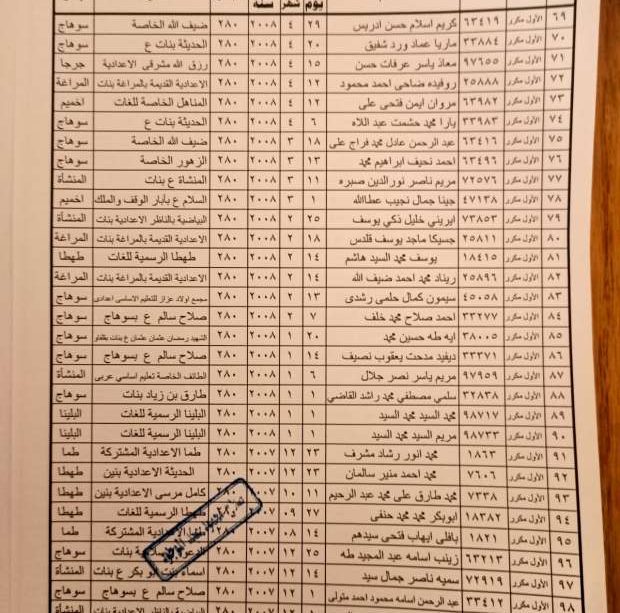 يوم شهر سنة
٦٩ الأول مكرر ٦٣٤١٩ كريم اسلام حسن ادريس ٢٩ ٤ ٢٠٠٨ ٢٨٠ ضيف الله الخاصة سوهاج
٧٠ الأول مكرر ٣٣٨٨٤ ماريا عماد ورد شفيق ٢٠ ٤ ٢٠٠٨ ٢٨٠ الحديثة بنات ع سوهاج
٧١ الأول مكرر ٩٧٦٥٥ معاذ ياسر عرفات حسن ١٥ ٤ ٢٠٠٨ ٢٨٠ رزق الله مشرقى الاعدادية جرجا
٧٢ الأول مكرر ٢٥٨٨٨ روفيده ضاحى احمد محمود ١٢ ٤ ٢٠٠٨ ٢٨٠ الاعدادية القديمة بالمراغة بنات المراغة
٧٣ الأول مكرر ٦٣٩٨٢ مروان ايمن فتحى على ١٢ ٤ ٢٠٠٨ ٢٨٠ المناهل الخاصة للغات اخميم
٧٤ الأول مكرر ٣٣٩٨٣ يارا محمد حشمت عبد اللاه ٦ ٤ ٢٠٠٨ ٢٨٠ الحديثة بنات ع سوهاج
٧٥ الأول مكرر ٦٣٤١٦ عبد الرحمن عادل محمد فراج على ١٨ ٣ ٢٠٠٨ ٢٨٠ ضيف الله الخاصة سوهاج
٧٦ الأول مكرر ٦٣٤٩٦ احمد نحيف ابراهيم محمد ١٣ ٣ ٢٠٠٨ ٢٨٠ الزهور الخاصة سوهاج
٧٧ الأول مكرر ٧٢٥٧٦ مريم ناصر نورالدين صبره ١١ ٣ ٢٠٠٨ ٢٨٠ المنشاة ع بنات المنشأة
٧٨ الأول مكرر ٤٧١٣٨ جينا جمال نجيب عطاالله ١ ٣ ٢٠٠٨ ٢٨٠ السلام ع بأبار الوقف والملك اخميم
٧٩ الأول مكرر ٧٣٨٥٣ ايرينى خليل ذكي يوسف ٢٥ ٢ ٢٠٠٨ ٢٨٠ البياضية بالناظر الاعدادية بنات المنشأة
٨٠ الأول مكرر ٢٥٨١١ جسيكا ماجد يوسف قلدس ١٨ ٢ ٢٠٠٨ ٢٨٠ الاعدادية القديمة بالمراغة بنات المراغة
٨١ الأول مكرر ١٨٤١٥ يوسف محمد السيد هاشم ١٤ ٢ ٢٠٠٨ ٢٨٠ طهطا الرسمية للغات طهطا
٨٢ الأول مكرر ٢٥٨٩٦ ريناد محمد احمد ضيف الله ١٤ ٢ ٢٠٠٨ ٢٨٠ الاعدادية القديمة بالمراغة بنات المراغة
٨٣ الأول مكرر ٤٥٠٥٨ سيمون كمال حلمى رشدى ١٣ ٢ ٢٠٠٨ ٢٨٠ مجمع اولاد عزاز للتعليم الاساسى اعدادى سوهاج
٨٤ الأول مكرر ٣٣٢٧٧ احمد صلاح محمد خلف ٧ ٢ ٢٠٠٨ ٢٨٠ صلاح سالم ع بسوهاج سوهاج
٨٥ الأول مكرر ٣٨٠٠٥ ايه طه حسين محمد ٢٠ ١ ٢٠٠٨ ٢٨٠ الشهيد رمضان عثمان عثمان ع بنات سوهاج
٨٦ الأول مكرر ٣٣٣٧١ ديفيد مدحت يعقوب نصيف ١٤ ١ ٢٠٠٨ ٢٨٠ صلاح سالم ع بسوهاج سوهاج
٨٧ الأول مكرر ٩٧٩٥٩ مريم ياسر نصر جلال ٦ ١ ٢٠٠٨ ٢٨٠ الطائف الخاصة تعليم اساسي عربى المنشأة
٨٨ الأول مكرر ٣٢٨٣٨ سلمي مصطفي محمد راشد القاضي ١ ١ ٢٠٠٨ ٢٨٠ طارق بن زياد بنات سوهاج
٨٩ الأول مكرر ٩٨٧١٧ محمد السيد محمد السيد ١ ١ ٢٠٠٨ ٢٨٠ البلينا الرسمية للغات البلينا
٩٠ الأول مكرر ٩٨٧٣٣ مريم السيد محمد السيد ١ ١ ٢٠٠٨ ٢٨٠ البلينا الرسمية للغات البلينا
٩١ الأول مكرر ١٨٦٣ محمد انور رشاد مشرف ٢٣ ١٢ ٢٠٠٧ ٢٨٠ طما الاعدادية المشتركة طما
٩٢ الأول مكرر ٧٦٠٦ محمد احمد منير سالمان ٢٣ ١٢ ٢٠٠٧ ٢٨٠ الحديثة الاعدادية بنين طهطا
٩٣ الأول مكرر ٧٣٣٨ محمد طارق على محمد عبد الرحيم ١١ ١٠ ٢٠٠٧ كامل مرسى الاعدادية بنين طهطا
٩٤ الأول مكرر ١٨٣٨٢ ابوبكر محمد محمد حنفى ٢٧ ٠٩ ٢٠٠٧ طهطا الرسمية للغات طهطا
٩٥ الأول مكرر ١٨٢١ بافلى ايهاب فتحى سيدهم ١٤ ٠٨ ٢٠٠٧ المشتركة طما
٩٦ الأول مكرر ٦٣٢١٣ زينب اسامه عبد المجيد طه ٢٥ ١٢ ٢٠٠٧ ٢٨٠ بنات سوهاج
٩٧ الأول مكرر ٧٢٩١٩ سميه ناصر جمال سيد ١٤ ١٢ ٢٠٠٧ ٢٨٠ اسماء بنت ابو بكر ع بنات المنشأة
٩٨ الأول مكرر ٣٣٤١٢ عبد الرحمن اسامه محمود احمد متولى ١ ١٢ ٢٠٠٧ ٢٨٠ صلاح سالم ع بسوهاج سوهاج
٢٨٠ البياضية بالناظر الاعدادية بنات المنشأة